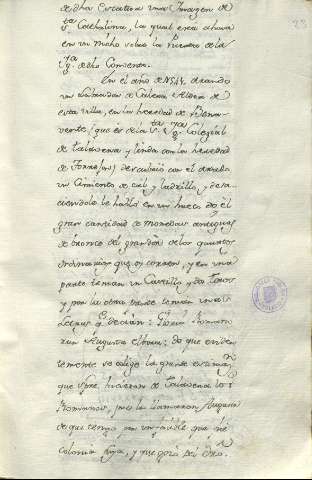 de dha Escultura una Imagen de
sta Cathalina, la qual esta ahora
en un nicho sobre la Puerta de la
Yga de dho Convento.
En el año de 1544 arando
un Labrador de Calera Aldea de
esta villa, en la heredad de Bena-
vente, que es de la Sta Yga Colegial
de Talavera, y linda con la heredad
de Torrejon, descubrio con el arado
un Cimiento de cal y ladrillo, y desa-
ciendole se hallò en un hueco de èl
gran cantidad de monedas antiguas
de bronce del grandor de los quartos
ordinarios que oy corren, y en una
parte tenian un Castillo y dos Toros
y por la otra parte tenian unas
Letras qe decian:
Augusta de que eviden-
temente se colige la grande estimaon
que spre hicieron de Talavera los
Romanos, pues la llamaron Augusta
de que tengo por infalible que fue
Colonia suya, y que gozò del dro.